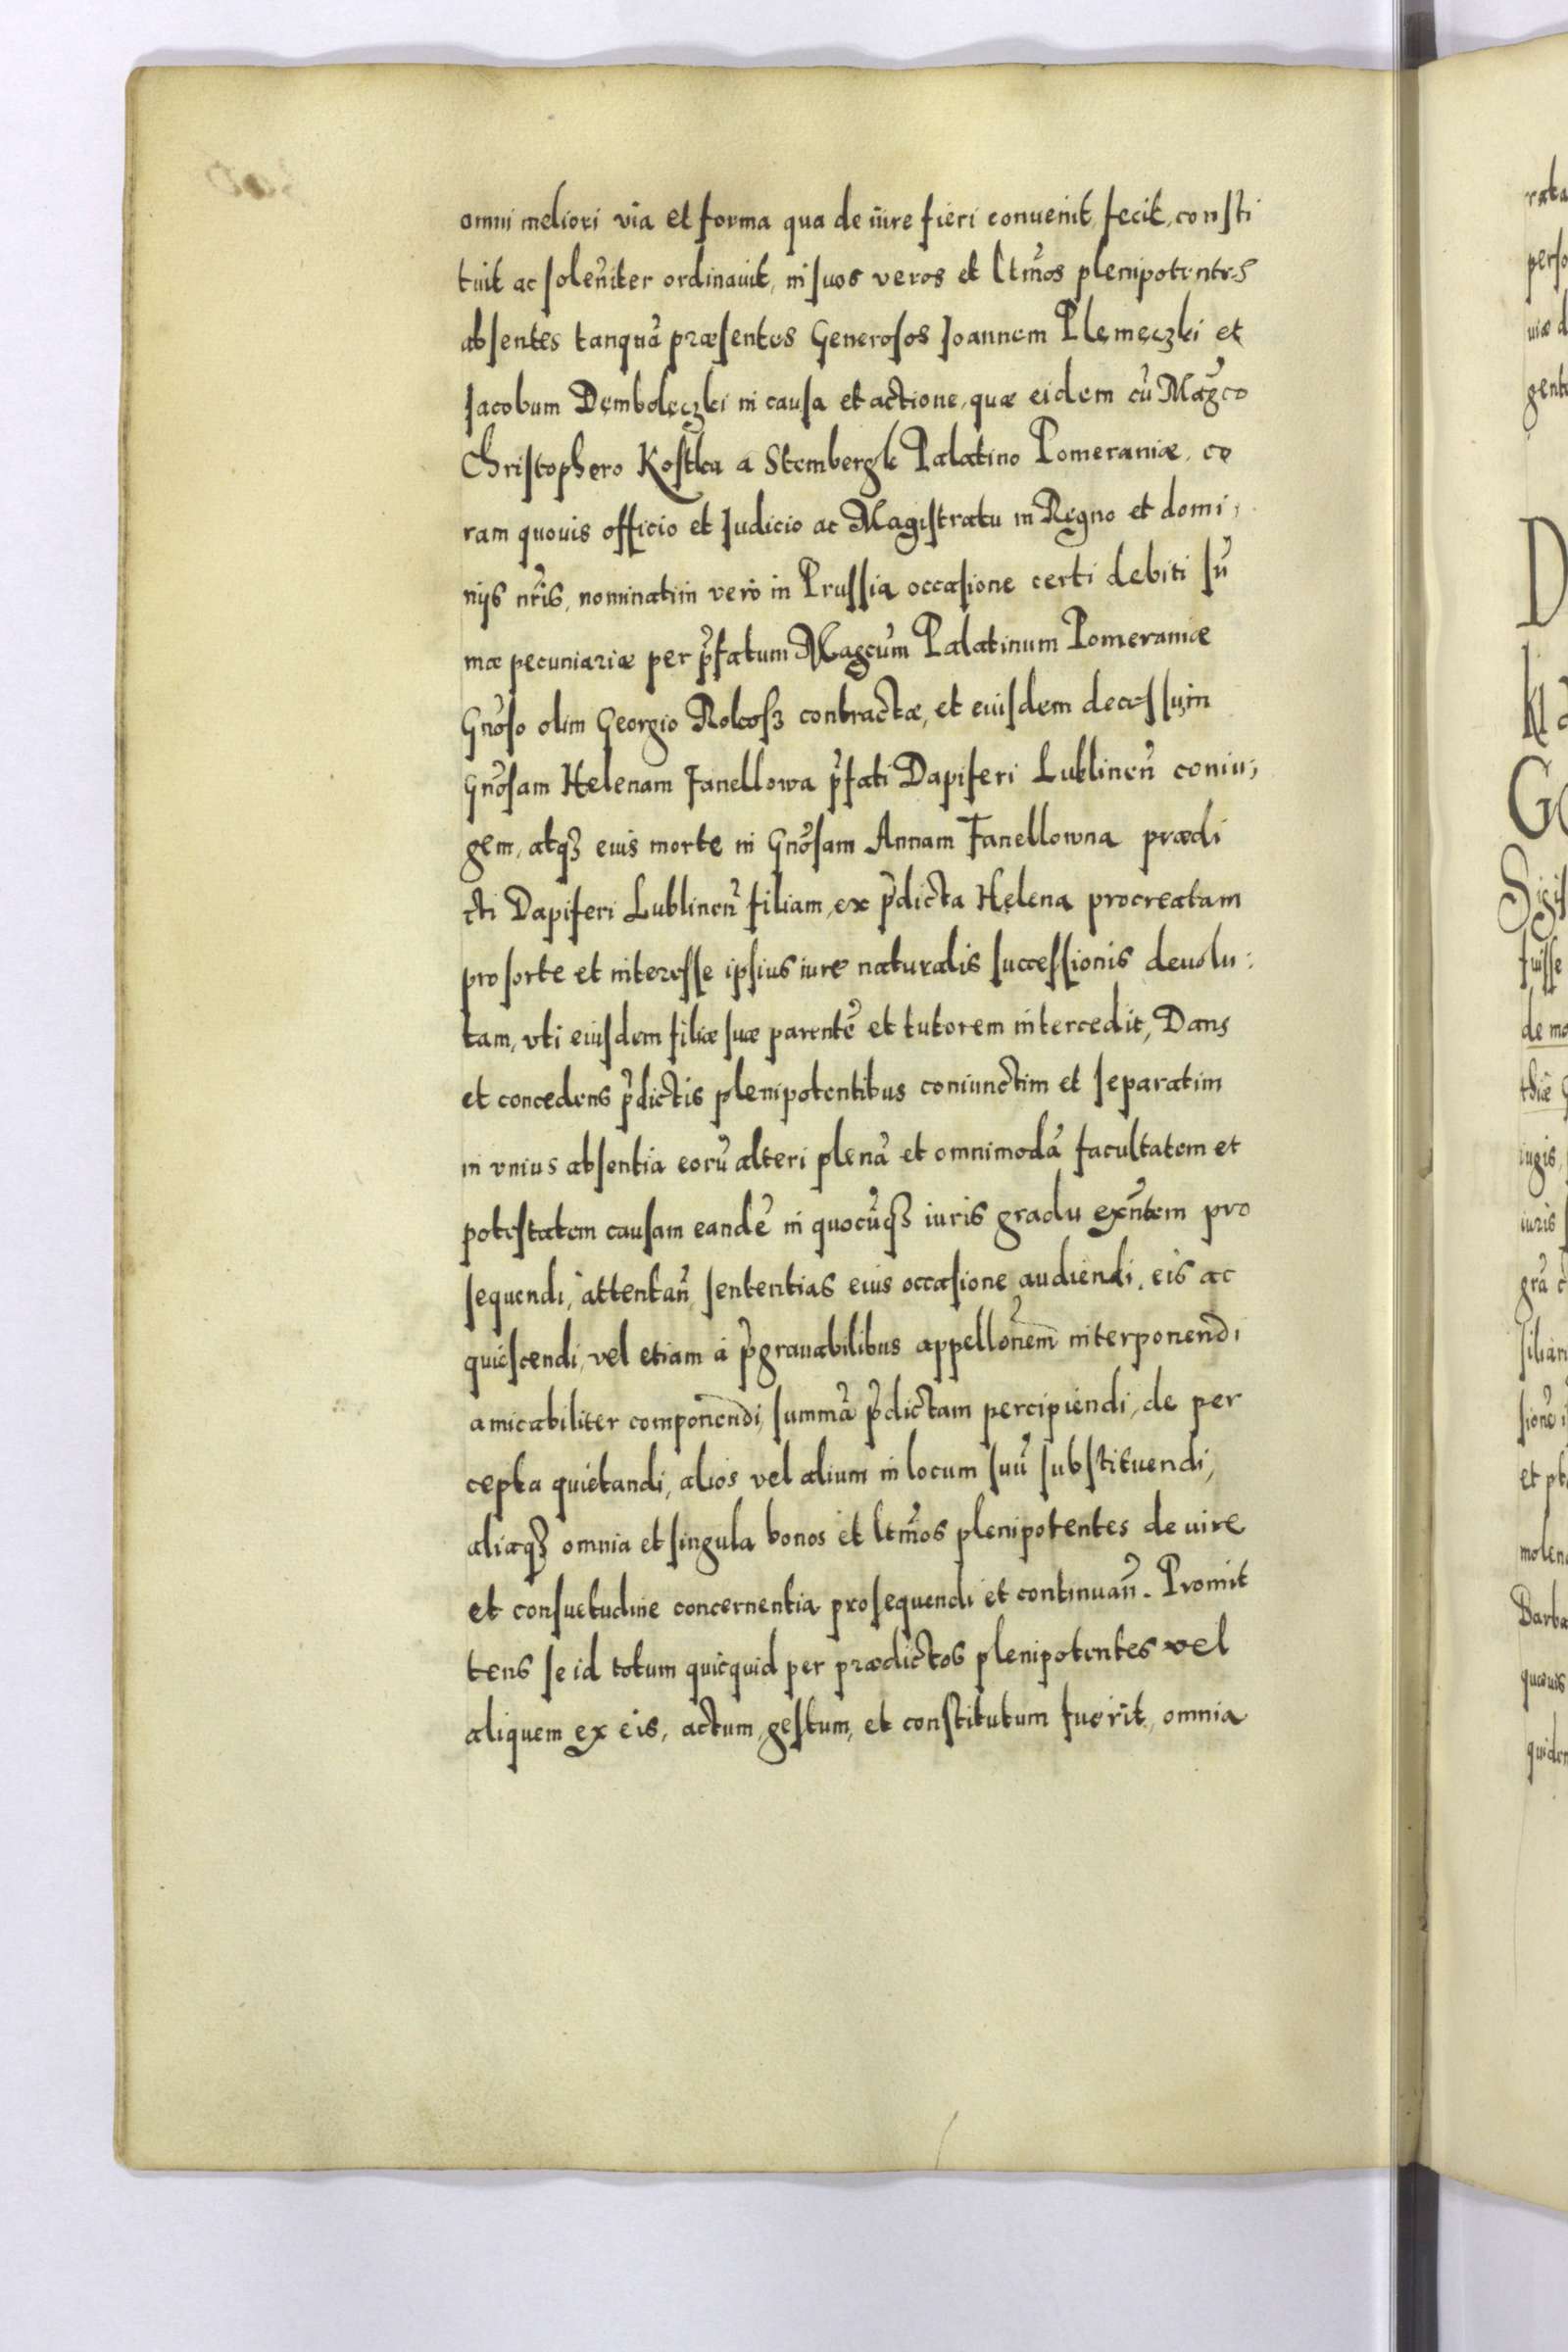 omni meliori via et forma qua de iure fieri conuenit, fecit, consti
tuit ac solen̄iter ordinauit, in suos veros et ltm̄os plenipotentes
absentes tanquā præsentes Generosos Ioannem Plemęczki et
Iacobum Dęmbolęczki in causa et actione, quæ eidem cū Mag̃co
Christophero Kostka a Stembergk Palatino Pomeraniæ, co
ram quouis officio et Iudicio ac Magistratu in Regno et domi,
nijs nr̄is, nominatim vero in Prussia occasione certi debiti sū
mæ pecuniariæ per p̄fatum Magcūm Palatinum Pomeraniæ
Gn̄oso olim Georgio Rokosz contractæ, et euisdem decessu, in
Gn̄osam Helenam Fanellowa p̄fati Dapiferi Lublinen̄ coniu,
gem, atqꝫ eius morte in Gn̄osam Annam Fanellowna prædi
cti Dapiferi Lublinen̄ filiam, ex p̄dicta Helena procreatam
pro sorte et interesse ipsius iure naturalis successionis deuolu:
tam, vti eiusdem filiæ suæ parentē et tutorem intercedit, Dans
et concedens p̄dictis plenipotentibus coniunctim et separatim
in vnius absentia eorū alteri plenā et omnimodā facultatem et
potestatem causam eandē in quocūqꝫ iuris gradu exn̄tem pro
sequendi, attentan̄, sententias eius occasione audiendi, eis ac
quiescendi, vel etiam à p̄grauabilibus appellon̄em interponendi
amicabiliter componendi, summā p̄dictam percipiendi, de per
cepta quietandi, alios vel alium in locum suū substituendi,
aliaqꝫ omnia et singula bonos et ltm̄os plenipotentes de iure
et consuetudine concernentia prosequendi et continuan̄. Promit
tens se id totum quicquid per prædictos plenipotentes vel
aliquem ex eis, actum, gestum, et constitutum fuerit, omnia